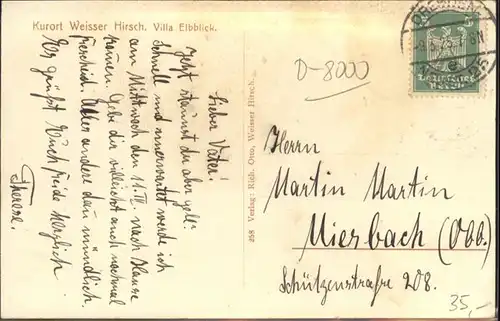 Kurort Weisser Hirsch. Villa Elbblick.
Lieber Vater!
Jetzt staunst du aber gell!
Schnell und unerwartet werde ich
am Mittwoch den 11. IV nach Hause
kommen. Gebe dir vielleicht auch nochmal
Bescheid. Alles andere dann mündlich.
Es grüßt Euch herzlich
Therese.
258 Verlag: Rich. Otto, Weisser Hirsch.
D-8000
5
DEUTSCHES REICH
8N
Herrn
Martin Martin
Mierbach (Obb.)
Schützenstraße 208.
35,-